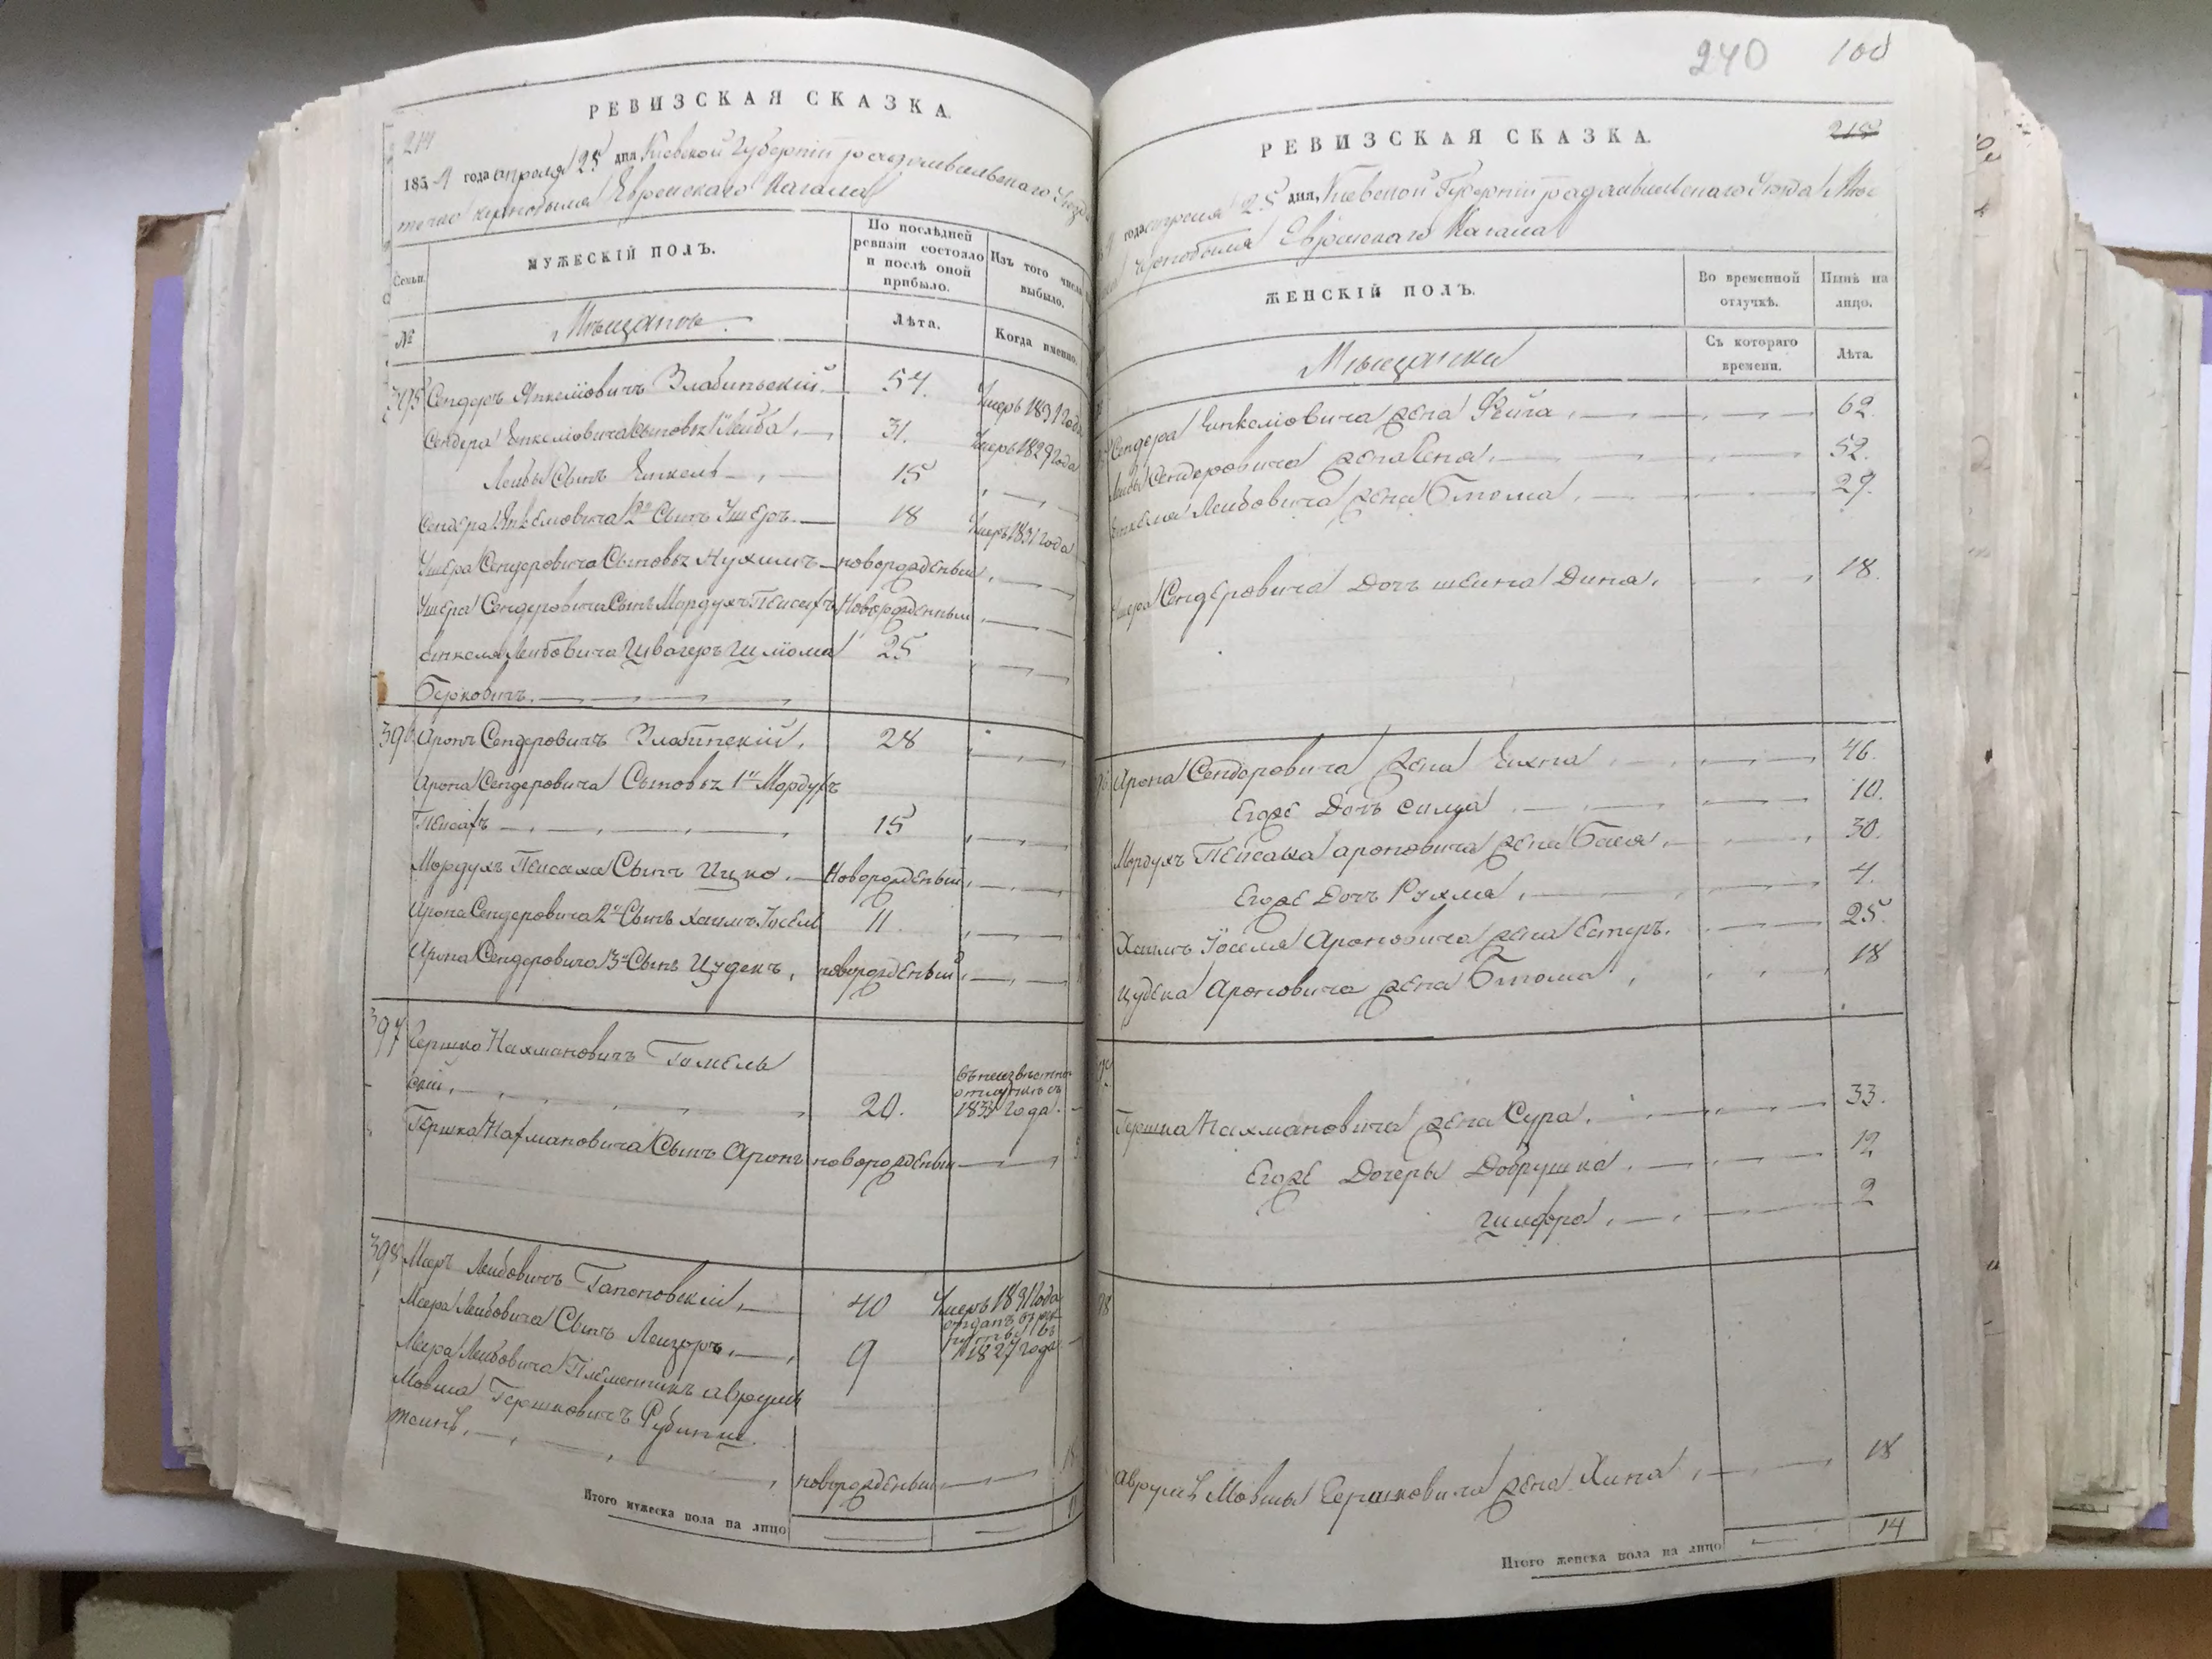 РЕВИЗСКАЯ СКАЗКА.
1834 года апреля 25 дня Киевской Губернiи радомысльскаго Уезда
течка чернобыля Еврейскаго Кагала
Семьи.
МУЖЕСКIЙ ПОЛЪ.
По послѣдней ревизiи состояло и послѣ оной прибыло.
Изъ того числа выбыло.
№
Мѣщанѣ.
Лѣта.
Когда именно.
395 Сендеръ Янкелiовичъ Злабинскiй. 54. Умеръ 1831 года
Сендера Янкелiовича Сыновъя Лейба. 31. Умеръ 1829 года
Лейбы Сынъ Янкель 15
Сендера Янкелiовича 2й Сынъ Ушеръ. 18 Умеръ 1831 года
Ушера Сендеровича Сыновъя Нухимъ новорожденый
Ушера Сендеровича Сынъ Мордухъ Пейсахъ Новорожденый
Янкеля Лейбовича Швагеръ Шлiома 25
Берковичъ.
396 Аронъ Сендеровичъ Злабинскiй. 28
Арона Сендеровича Сыновъя 1й Мордухъ
Пейсахъ 15
Мордухъ Пейсаха Сынъ Ицко. Новорожденый
Арона Сендеровича 2й Сынъ Хаимъ Иосель 11
Арона Сендеровича 3й Сынъ Цудекъ, новорожденый
397 Гершко Нахмановичъ Гомель
скiй. 20. въ неизвестной отлучкѣ съ 1833 года.
Гершка Нахмановича Сынъ Аронъ новорожденый
398 Мееръ Лейбовичъ Гапоновскiй, 40 Умеръ 1831 года
Меера Лейбовича Сынъ Лейзоръ. 9 отданъ въ рекруты въ 1827 года
Меера Лейбовича Племенникъ аврумъ
Мовша Гершковичъ Рубинш
теинъ. новорожденый
Итого мужеска пола на лицо
240 100
РЕВИЗСКАЯ СКАЗКА.
215
года апреля 25 дня, Киевской Губернiи радомысльскаго Уезда Мѣс
чернобыля Еврейскаго Кагала
ЖЕНСКIЙ ПОЛЪ.
Во временной отлучкѣ.
Нынѣ на лицо.
Мѣщанки
Съ котораго времени.
Лѣта.
Сендера Янкелiовича жена Фейга. 62.
Лейбы Сендеровича жена 52.
Янкеля Лейбовича жена Бтома. 29.
Ушера Сендеровича Дочъ шеина Дина. 18.
Арона Сендеровича жена Яхна 46.
Егоже Дочъ симца 10.
Мордухъ Пейсаха ароновича жена Бася. 30.
Егоже Дочъ Рухма 4.
Хаимъ Иоселя Ароновича жена Естеръ. 25.
Цудека Ароновича жена Бтома 18
Гершка Нахмановича жена Сура. 33.
Егоже Дочеры Добрушка. 12
Шифра. 2
аврумъ Мовшы Гершковича жена Хина 18
Итого женска пола на лицо 14